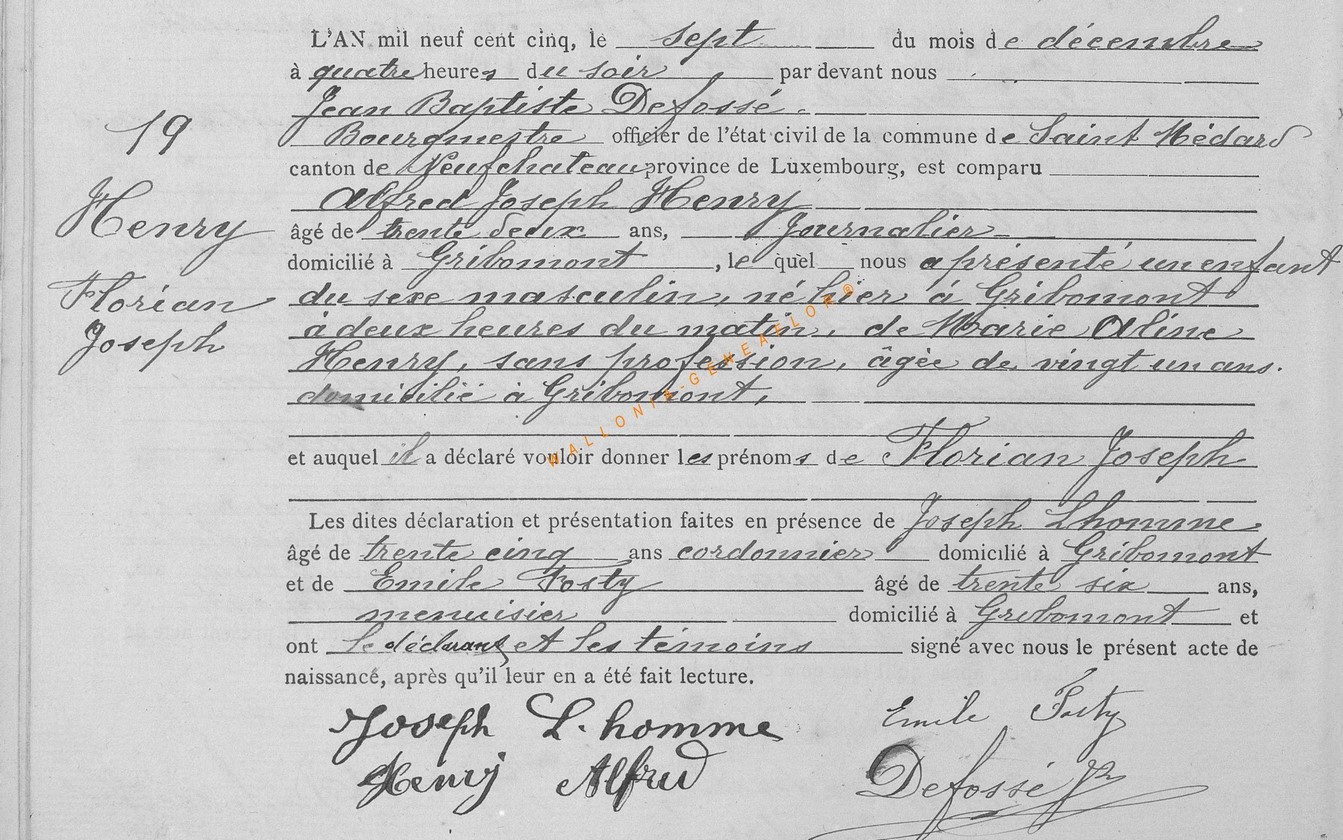 L'AN mil neuf cent cinq, le sept du mois de décembre
à quatre heures du soir par devant nous
Jean Baptiste Defossé
19
Bourgmestre officier de l'état civil de la commune de Saint Médard
canton de Neufchateau province de Luxembourg, est comparu
Alfred Joseph Henry
Henry
âgé de trente deux ans, Journalier
domicilié à Gribomont, lequel nous a présenté un enfant
Florian
du sexe masculin, né hier à Gribomont
à deux heures du matin, de Marie Aline
Joseph
Henry, sans profession, âgée de vingt un ans.
domicilié à Gribomont,
WALLONIA-GENEALLORD
et auquel il a déclaré vouloir donner les prénoms de Florian Joseph
Les dites déclaration et présentation faites en présence de Joseph Lhomme
âgé de trente cinq ans cordonnier domicilié à Gribomont
et de Emile Fosty âgé de trente six ans,
menuisier domicilié à Gribomont et
ont le déclarant et les témoins signé avec nous le présent acte de
naissance, après qu'il leur en a été fait lecture.
Joseph L. homme Emile Fosty
Henry Alfred Defossé